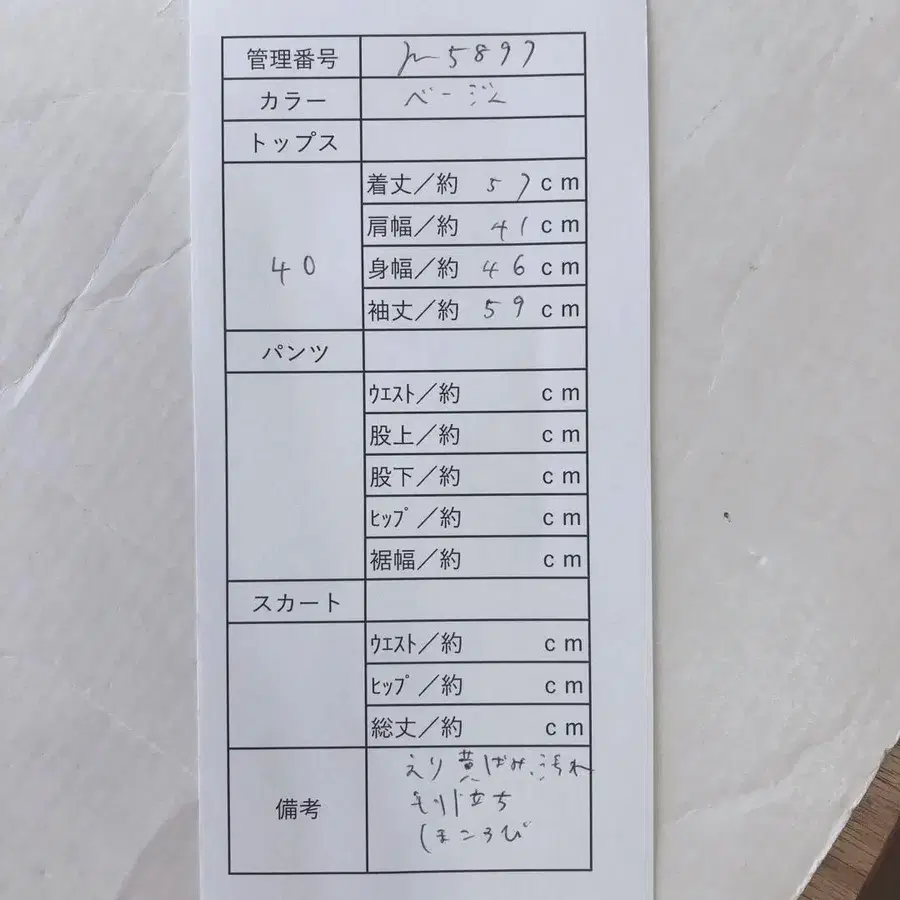 管理番号 5897
カラー ベージュ
トップス
40
着丈／約 57 cm
肩幅／約 41 cm
身幅／約 46 cm
袖丈／約 59 cm
パンツ
ｳｴｽﾄ／約 cm
股上／約 cm
股下／約 cm
ﾋｯﾌﾟ／約 cm
裾幅／約 cm
スカート
ｳｴｽﾄ／約 cm
ﾋｯﾌﾟ／約 cm
総丈／約 cm
備考
えり黄ばみ、汚れ
毛羽立ち
ほころび